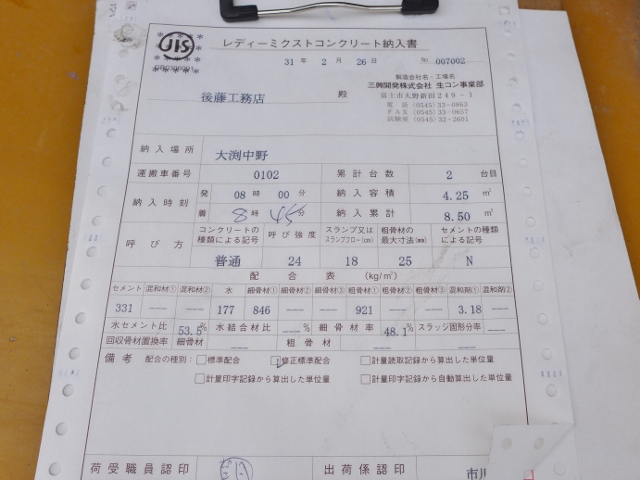 JIS
レディーミクストコンクリート納入書
31 年 2 月 26 日 No 007002
後藤工務店 殿
製造会社名・工場名
三興開発株式会社 生コン事業部
富士市大野新田249-1
電 話 (0545)33-0863
FAX (0545)33-0657
試験室 (0545)32-2601
納入場所 大渕中野
運搬車番号 0102 累計台数 2 台目
納入時刻 発 08 時 00 分 納入容積 4.25 m³
着 8 時 45 分 納入累計 8.50 m³
呼び方 コンクリートの種類による記号 呼び強度 スランプ又はスランプフロー(cm) 粗骨材の最大寸法(mm) セメントの種類による記号
普通 24 18 25 N
配合表 (kg/m³)
セメント 混和材① 混和材② 水 細骨材① 細骨材② 細骨材③ 粗骨材① 粗骨材② 粗骨材③ 混和剤① 混和剤②
331 — — 177 846 — — 921 — — 3.18 —
水セメント比 53.5% 水結合材比 —% 細骨材率 48.1% スラッジ固形分率 —
回収骨材置換率 細骨材 — 粗骨材 —
備考 配合の種別: □標準配合 □修正標準配合 □計量読取記録から算出した単位量
□計量印字記録から算出した単位量 □計量印字記録から自動算出した単位量
荷受職員認印 出荷係認印 市川